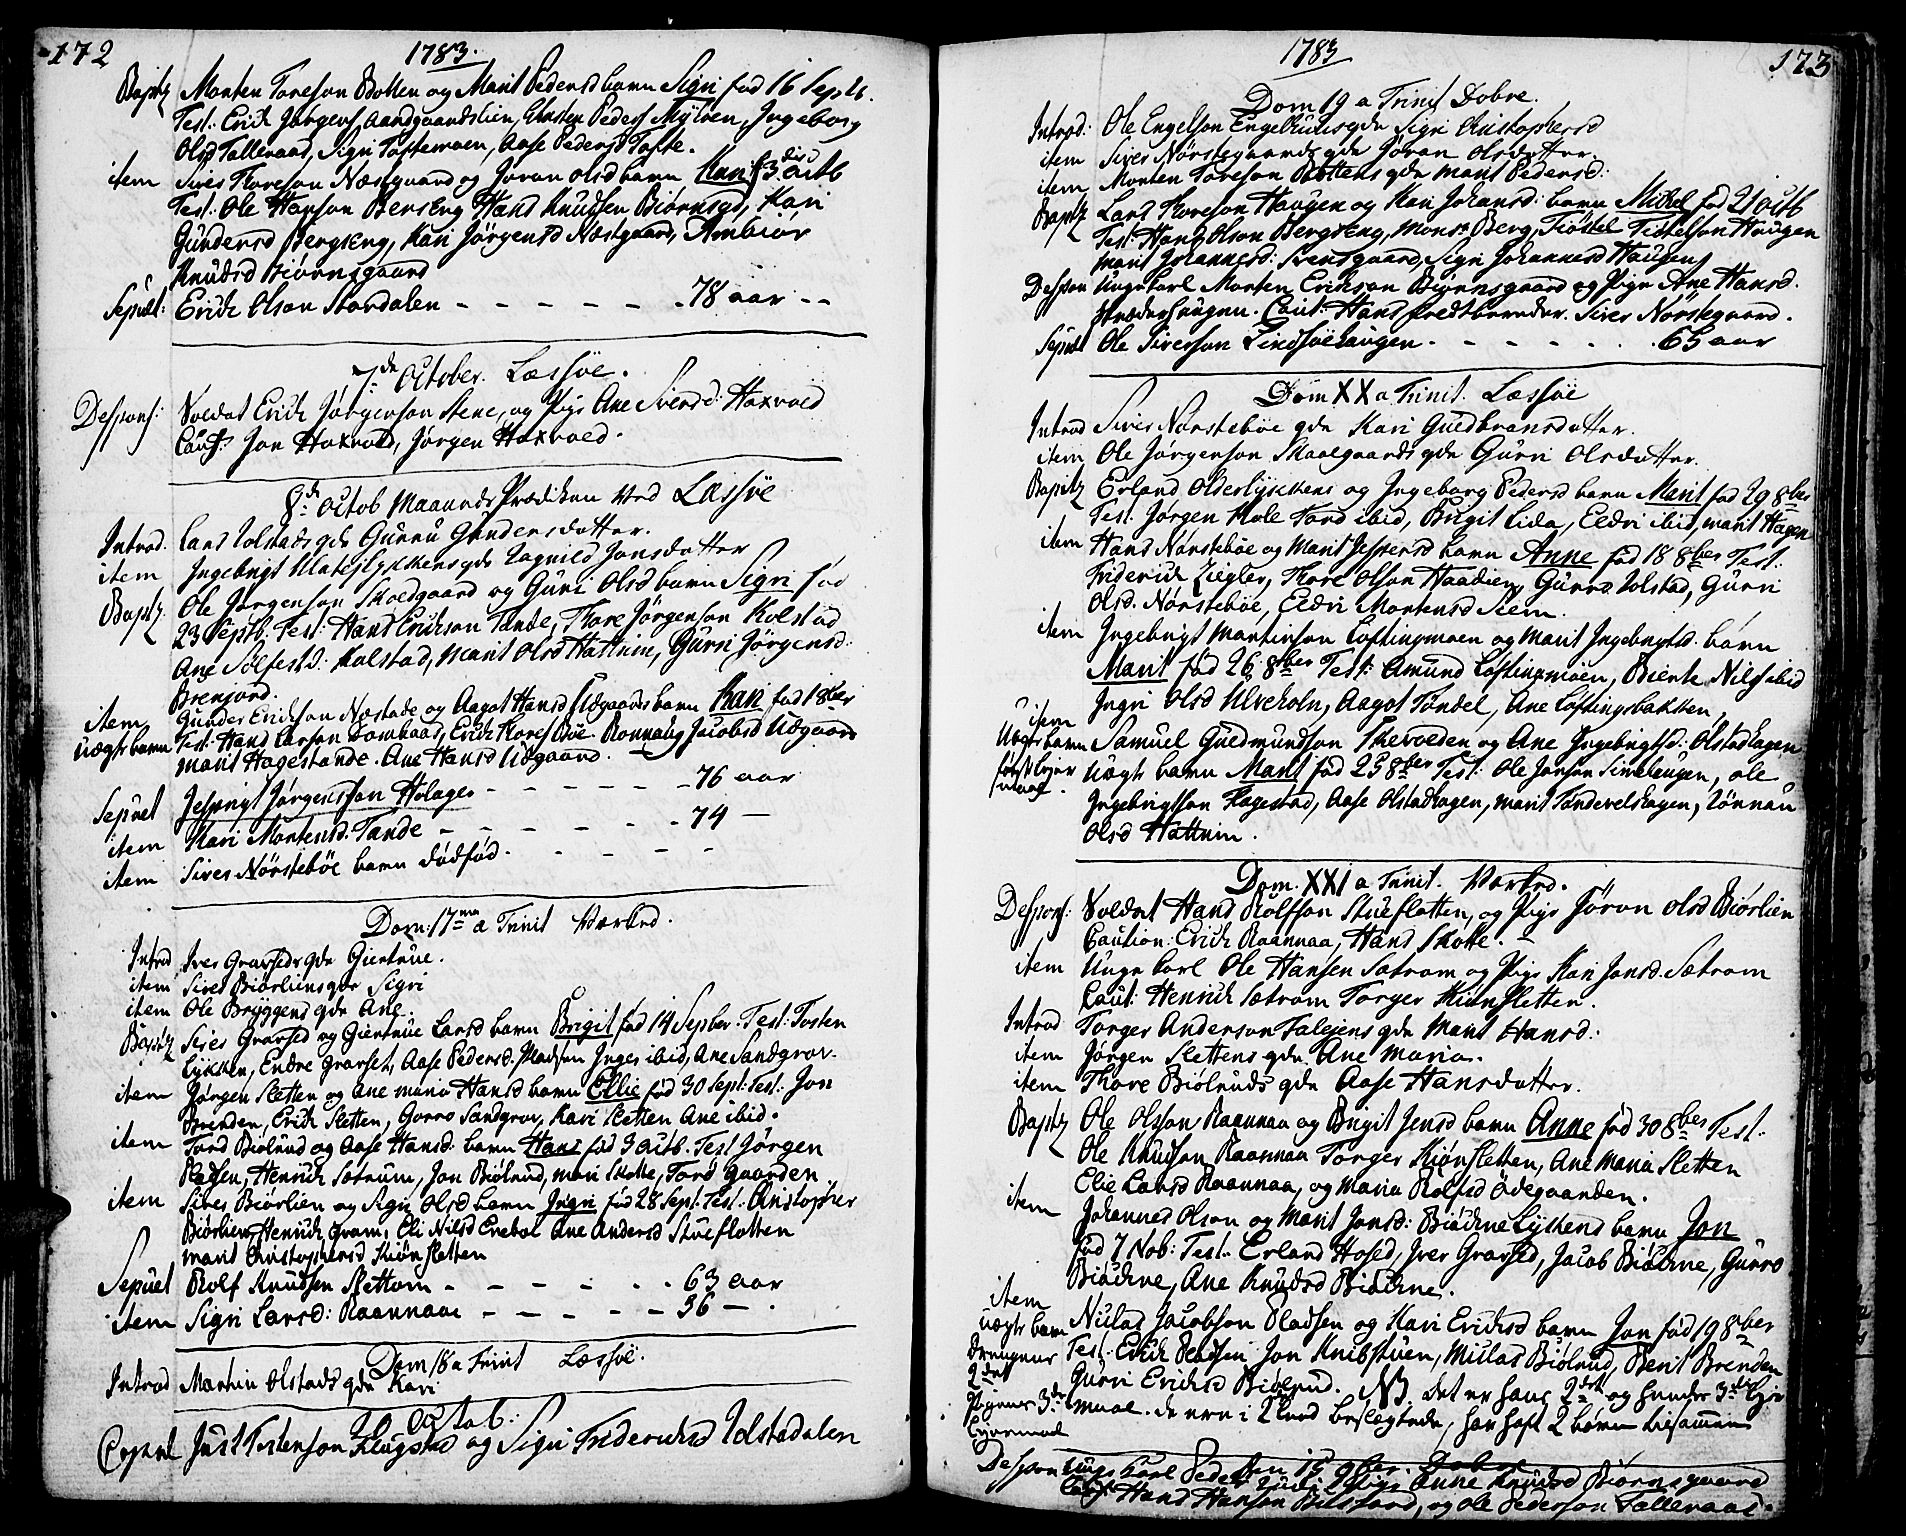 172
1783.
Baptz Morten Toreson Botten og Marit Pedersd barn Sigri fød 16 Septb.
Test: Erich Jørgens Aandgaardslien, Christen Peders Mylren, Ingeborg
Olsd Talleraas, Sigri Toftemoen, Aase Pedersd Tofte.
item Siver Thoreson Næstgaard og Joran Olsd barn Kari f 3 die octb
Test: Ole Hanson Berseng Hans Knudsen Biørnsgd, Kari
Gundersd Bergseng, Kari Jørgensd Næstgaard, Ambiør
Knudsd Biørnsgaard
Sepult: Erich Olson Stordalen - - - - - - 78 aar --
7de October. Læssøe.
Desponst: Soldat Erich Jørgenson Stene, og Pige Ane Siversd: Haxroed
Caut: Jon Haxroed, Jørgen Haxroed.
8de Octob Maaneds Prædiken ved Læssøe
Introd. Lars Iolstads qde Gunnu Gundersdatter.
item Ingebrigt Ulateslykkens qde Ragnild Jonsdatter
Baptz. Ole Jørgenson Skoedgaard og Guri Olsd barn Sigri fød
23 Septb. Test: Hans Erichson Tande, Thore Jørgenson Kolstad
Ane Solfestd: Kalstad, Marit Olsd Hattrem, Gurri Jørgensd:
Brenjord.
item Gunder Erichson Næstade og Aagot Hansd Udgaards barn Kari fød 1 8ber
uægte barn Test: Hans Larson Dombaas, Erich Thores Bøe Ronnaug Jacobsd Udgaard
Marit Hagestande. Ane Hansd Udgaard.
Sepult Jesprigt Jørgensson Holager - - - - - - 76 aar
item Kari Mortensd. Tande - - - - - - 74 -
item Siver Nørstebøe barn dødfød. - - - - -
Dom: 17ma a Trinit Worked.
Introd Iver Gravseds qde Giertrue.
item Siver Biørliens qde Sigri
item Ole Bryggens qde Ane.
Baptz Siver Gravsed og Giertrue Larsd barn Brigit fød 14 Sepber. Test: Tosten
Lykken, Endre Gravset, Aase Pedersd: Pladsen Inger ibid, Ane Sandgrov.
item Jørgen Sletten og Ane Maria Hansd barn Ellie fød 30 Sept: Test: Jon
Brenden, Erich Sletten, Gorro Sandgrov, Kari Sletten Ane ibid.
item Tord Biølrud og Aase Hansd: barn Hans fød 3 octb. Test Jørgen
Pladsen, Henrich Sætrum, Jon Biølrud, Mari Skotte, Tord Gaarden
item Siver Biørlien og Sigri Olsd barn Ingri fød 28 Sept: Test: Christopher
Biørlien, Henrich Qvam, Eli Nilsd Eneboe Ane Andersd Stueflotten
Marit Christophersd Kiønsletten
Sepult Rolf Knudsen Slettom - - - - - - 63 aar
item Sigri Larsd: Raannaae - - - - - 36 - .
Dom 18 a Trinit Læssøe.
Introd Martin Olstads qde Kari
20 Octob:
Copul Just Tostenson Flugstad og Sigri Friderichsd Iolstadalen
1783
173
Dom 19 a Trinit Dobre.
Introd: Ole Engelson Engelhuus qde Sigri Christophersd
item Siver Nørstegaards qde Joran Olsdatter.
item Morten Toreson Bottens qde Marit Pedersd:
Baptz Lars Thoreson Haugen og Kari Johansd: barn Michel fød 21 octb
Test: Hans Olson Bergseng, Mons: Berg, Tiøstel Tiøstelson Haugen
Marit Johannesd: Svensgaard, Sigri Johannesd Haugen
Despon Unge Karl Morten Erichson Biørnsgaard og Pige Ane Hansd.
Skrederhaugen. Caut: Hans Sredtbernder. Siver Nørstegaard.
Sepult Ole Siverson Lindsøehaugen. - - - - - 65 aar
Dom XX a Trinit. Læssøe
Introd Siver Nørstebøe qde Kari Guldbransdatter.
item Ole Jørgenson Skaalgaards qde Gurri Olsdatter.
Baptz Erland Olderlykkens og Ingeborg Pedersd barn Marit fød 29 8ber
Test. Jørgen Hole Tord ibid, Brigit Lida, Eldri ibid, Marit Hagen
item Hans Nørstebøe og Marit Jespersd barn Anne fød 18 8ber Test:
Friderich Ziegler, Thore Olson Haadien, Gurro Iolstad, Gurri
Olsd. Nørstebøe, Eldri Mortensd Siem.
item Ingebrigt Martinson Loftingmoen og Marit Ingebrigtsd. barn
Marit fød 26 8ber Test: Amund Loftingmoen, Biente Nils ibid
Ingri Olsd Ulveholn, Aagot Tøndel, Ane Loftingsbakken
item
Uægte barn Samuel Guldmundson Theroeden og Ane Ingebrigtsd: Olstadhagen
første leier uægte barn Marit fød 25 8ber Test: Ole Jonson Sinclaugen, Ole
maal. Ingebrigtson Flagestad, Aase Olstadhagen, Marit Tandevelshagen, Rønnau
Olsd Hattrem.
Dom. XXI a Trinit. Worked.
Desponst: Soldat Hans Rolfson Stueflotten, og Pige Jöran Olsd Biørlien
Caution: Erich Raannaa, Hans Skotte.
item Unge Carl Ole Hansen Sætrom og Pige Kari Jonsd. Sætrom
Caut: Henrich Sætrom Torger Kiønsletten.
Introd Torger Anderson Falejens qde Marit Hansd:
item Jørgen Slettens qde Ane Maria.
item Thore Biølruds qde Aase Hansdatter.
Baptz Ole Olsson Raannaa og Brigit Jensd barn Anne fød 30 8ber Test:
Ole Knudson Raannaa Torger Kiønsletten, Ane Maria Sletten
Elie Larsd Raannaa, og Maria Rolfsd Ödegaarden.
item Johannes Olson og Marit Jonsd: Biøchne Lykkens barn Jon
fød 7 Nob: Test. Erland Hosed, Iver Gravsed, Jacob Biøchne, Gurro
Biøchne, Ane Knudsd Biøchne.
item
uægte barn Niclas Jacobson Pladsen og Kari Erichsd barn Jon fød 19 8ber
Drengens Test. Erich Pladsen Jon Knibstuen, Niclas Biølrud, Berit Brenden
2det Gurri Erichsd Biølrud. NB. det er hans 2det og hendes 3die leier
Pigens 3die maal. de ere i 2 led beslegtede, har haft 2 børn tilsammen
Leiermaal
den 15 9ber. Dobre
Despon Unge Karl Peder og Pige Anne Knudsd Biørnsgaard
Caut: Hans Hanson Bilsted, og Ole Pederson Talleraas.